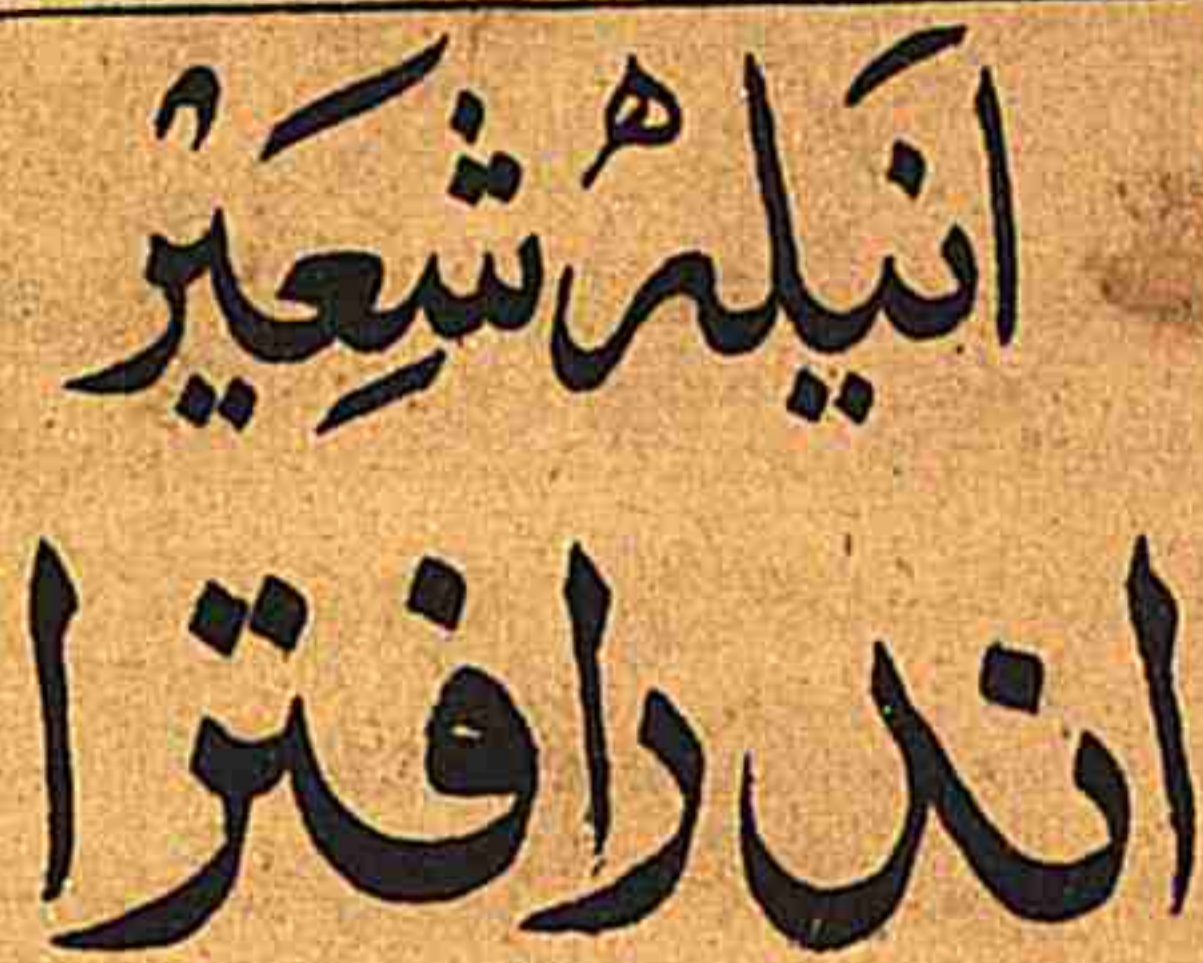 انَيلهْ شِعَيْر
اندرافترا